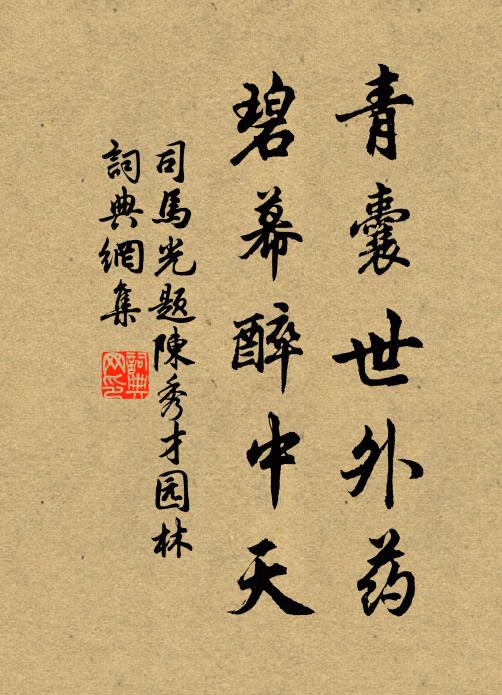 青囊世外药
碧幕醉中天
司馬光题陳秀才园林
詞典網集
詞典
网印